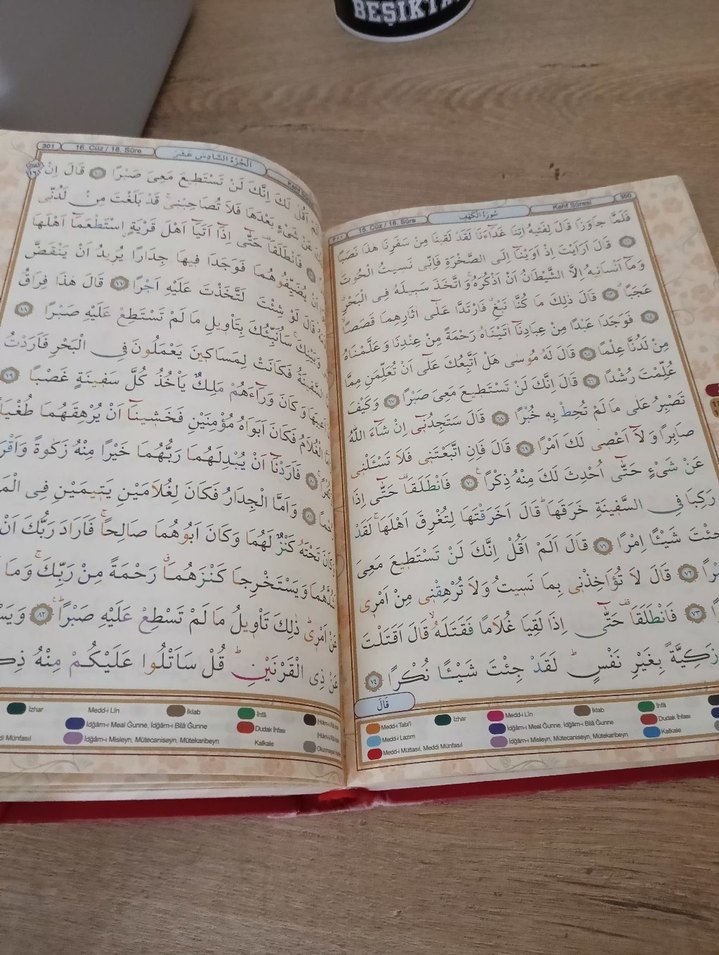 BEŞİKTA
300
Kehf Sûresi
سُورَةُ الْكَهْفِ
15. Cüz / 18. Sûre
فَلَمَّا جَاوَزَا قَالَ لِفَتٰيهُ اٰتِنَا غَدَٓاءَنَا لَقَدْ لَق۪ينَا مِنْ سَفَرِنَا هٰذَا نَصَبًا
﴿٦٢﴾ قَالَ اَرَاَيْتَ اِذْ اَوَيْنَٓا اِلَى الصَّخْرَةِ فَاِنّ۪ي نَس۪يتُ الْحُوتَ
وَمَٓا اَنْسَان۪يهُ اِلَّا الشَّيْطَانُ اَنْ اَذْكُرَهُ وَاتَّخَذَ سَب۪يلَهُ فِي الْبَحْرِ
عَجَبًا ﴿٦٣﴾ قَالَ ذٰلِكَ مَا كُنَّا نَبْغِ فَارْتَدَّا عَلٰٓى اٰثَارِهِمَا قَصَصًا
﴿٦٤﴾ فَوَجَدَا عَبْدًا مِنْ عِبَادِنَٓا اٰتَيْنَاهُ رَحْمَةً مِنْ عِنْدِنَا وَعَلَّمْنَاهُ
مِنْ لَدُنَّا عِلْمًا ﴿٦٥﴾ قَالَ لَهُ مُوسٰى هَلْ اَتَّبِعُكَ عَلٰٓى اَنْ تُعَلِّمَنِ مِمَّا
عُلِّمْتَ رُشْدًا ﴿٦٦﴾ قَالَ اِنَّكَ لَنْ تَسْتَط۪يعَ مَعِيَ صَبْرًا ﴿٦٧﴾ وَكَيْفَ
تَصْبِرُ عَلٰى مَا لَمْ تُحِطْ بِه۪ خُبْرًا ﴿٦٨﴾ قَالَ سَتَجِدُن۪ٓي اِنْ شَٓاءَ اللّٰهُ
صَابِرًا وَلَٓا اَعْص۪ي لَكَ اَمْرًا ﴿٦٩﴾ قَالَ فَاِنِ اتَّبَعْتَن۪ي فَلَا تَسْـَٔلْن۪ي
عَنْ شَيْءٍ حَتّٰٓى اُحْدِثَ لَكَ مِنْهُ ذِكْرًا ﴿٧٠﴾ فَانْطَلَقَا۠ حَتّٰٓى اِذَا
رَكِبَا فِي السَّف۪ينَةِ خَرَقَهَا قَالَ اَخَرَقْتَهَا لِتُغْرِقَ اَهْلَهَا لَقَدْ
جِئْتَ شَيْـًٔا اِمْرًا ﴿٧١﴾ قَالَ اَلَمْ اَقُلْ اِنَّكَ لَنْ تَسْتَط۪يعَ مَعِيَ
صَبْرًا ﴿٧٢﴾ قَالَ لَا تُؤَاخِذْن۪ي بِمَا نَس۪يتُ وَلَا تُرْهِقْن۪ي مِنْ اَمْر۪ي
عُسْرًا ﴿٧٣﴾ فَانْطَلَقَا۠ حَتّٰٓى اِذَا لَقِيَا غُلَامًا فَقَتَلَهُ قَالَ اَقَتَلْتَ
نَفْسًا زَكِيَّةً بِغَيْرِ نَفْسٍ لَقَدْ جِئْتَ شَيْـًٔا نُكْرًا ﴿٧٤﴾
قَالَ
Medd-i Tabiî
İzhar
Medd-i Lîn
İklab
İhfâ
Medd-i Lazım
İdğâm-ı Meal Ğunne, İdğâm-ı Bilâ Ğunne
Dudak İhfası
Medd-i Muttasıl, Medd-i Munfasıl
İdğâm-ı Misleyn, Mütecaniseyn, Mütekaribeyn
Kalkale
Kehf Sûresi
الْجُزْءُ السَّادِسُ عَشَرَ
16. Cüz / 18. Sûre
301
اَلَمْ اَقُلْ لَكَ اِنَّكَ لَنْ تَسْتَط۪يعَ مَعِيَ صَبْرًا ﴿٧٥﴾ قَالَ اِنْ
عَنْ شَيْءٍ بَعْدَهَا فَلَا تُصَاحِبْن۪ي قَدْ بَلَغْتَ مِنْ لَدُنّ۪ي
فَانْطَلَقَا۠ حَتّٰٓى اِذَٓا اَتَيَٓا اَهْلَ قَرْيَةٍ اسْتَطْعَمَٓا اَهْلَهَا
اَنْ يُضَيِّفُوهُمَا فَوَجَدَا ف۪يهَا جِدَارًا يُر۪يدُ اَنْ يَنْقَضَّ
قَالَ لَوْ شِئْتَ لَتَّخَذْتَ عَلَيْهِ اَجْرًا ﴿٧٧﴾ قَالَ هٰذَا فِرَاقُ
وَبَيْنِكَ سَاُنَبِّئُكَ بِتَأْو۪يلِ مَا لَمْ تَسْتَطِعْ عَلَيْهِ صَبْرًا ﴿٧٨﴾
السَّف۪ينَةُ فَكَانَتْ لِمَسَاك۪ينَ يَعْمَلُونَ فِي الْبَحْرِ فَاَرَدْتُ
اَع۪يبَهَا وَكَانَ وَرَٓاءَهُمْ مَلِكٌ يَأْخُذُ كُلَّ سَف۪ينَةٍ غَصْبًا ﴿٧٩﴾
الْغُلَامُ فَكَانَ اَبَوَاهُ مُؤْمِنَيْنِ فَخَش۪ينَٓا اَنْ يُرْهِقَهُمَا طُغْيَانًا
فَاَرَدْنَٓا اَنْ يُبْدِلَهُمَا رَبُّهُمَا خَيْرًا مِنْهُ زَكٰوةً وَاَقْرَبَ
وَاَمَّا الْجِدَارُ فَكَانَ لِغُلَامَيْنِ يَت۪يمَيْنِ فِي
وَكَانَ تَحْتَهُ كَنْزٌ لَهُمَا وَكَانَ اَبُوهُمَا صَالِحًا فَاَرَادَ رَبُّكَ اَنْ
اَشُدَّهُمَا وَيَسْتَخْرِجَا كَنْزَهُمَا رَحْمَةً مِنْ رَبِّكَ وَمَا
عَنْ اَمْر۪ي ذٰلِكَ تَأْو۪يلُ مَا لَمْ تَسْطِعْ عَلَيْهِ صَبْرًا ﴿٨٢﴾
عَنْ ذِي الْقَرْنَيْنِ قُلْ سَاَتْلُوا عَلَيْكُمْ مِنْهُ
İzhar
Medd-i Lîn
İklab
İhfâ
İdğâm-ı Meal Ğunne, İdğâm-ı Bilâ Ğunne
Dudak İhfası
Medd-i Munfasıl
İdğâm-ı Misleyn, Mütecaniseyn, Mütekaribeyn
Kalkale